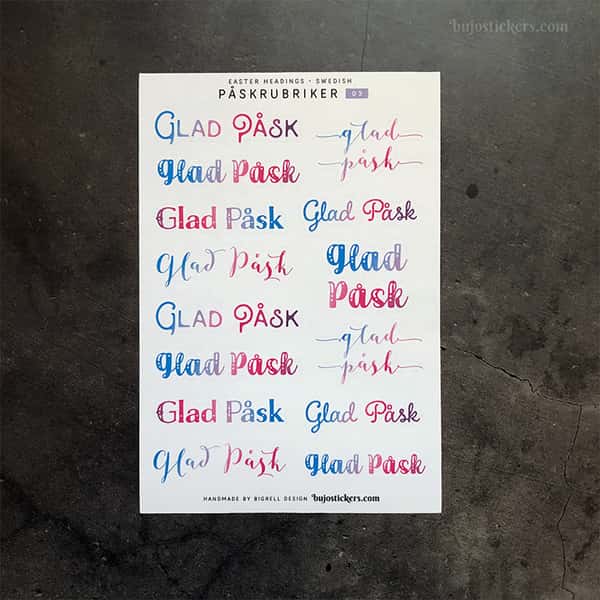 bujostickers.com
EASTER HEADINGS • SWEDISH
PÅSKRUBRIKER 03
GLAD PÅSK
Glad Påsk
Glad Påsk
Glad Påsk
GLAD PÅSK
Glad Påsk
Glad Påsk
Glad Påsk
glad
påsk
Glad Påsk
Glad
Påsk
glad
påsk
Glad Påsk
Glad Påsk
HANDMADE BY BIGRELL DESIGN bujostickers.com